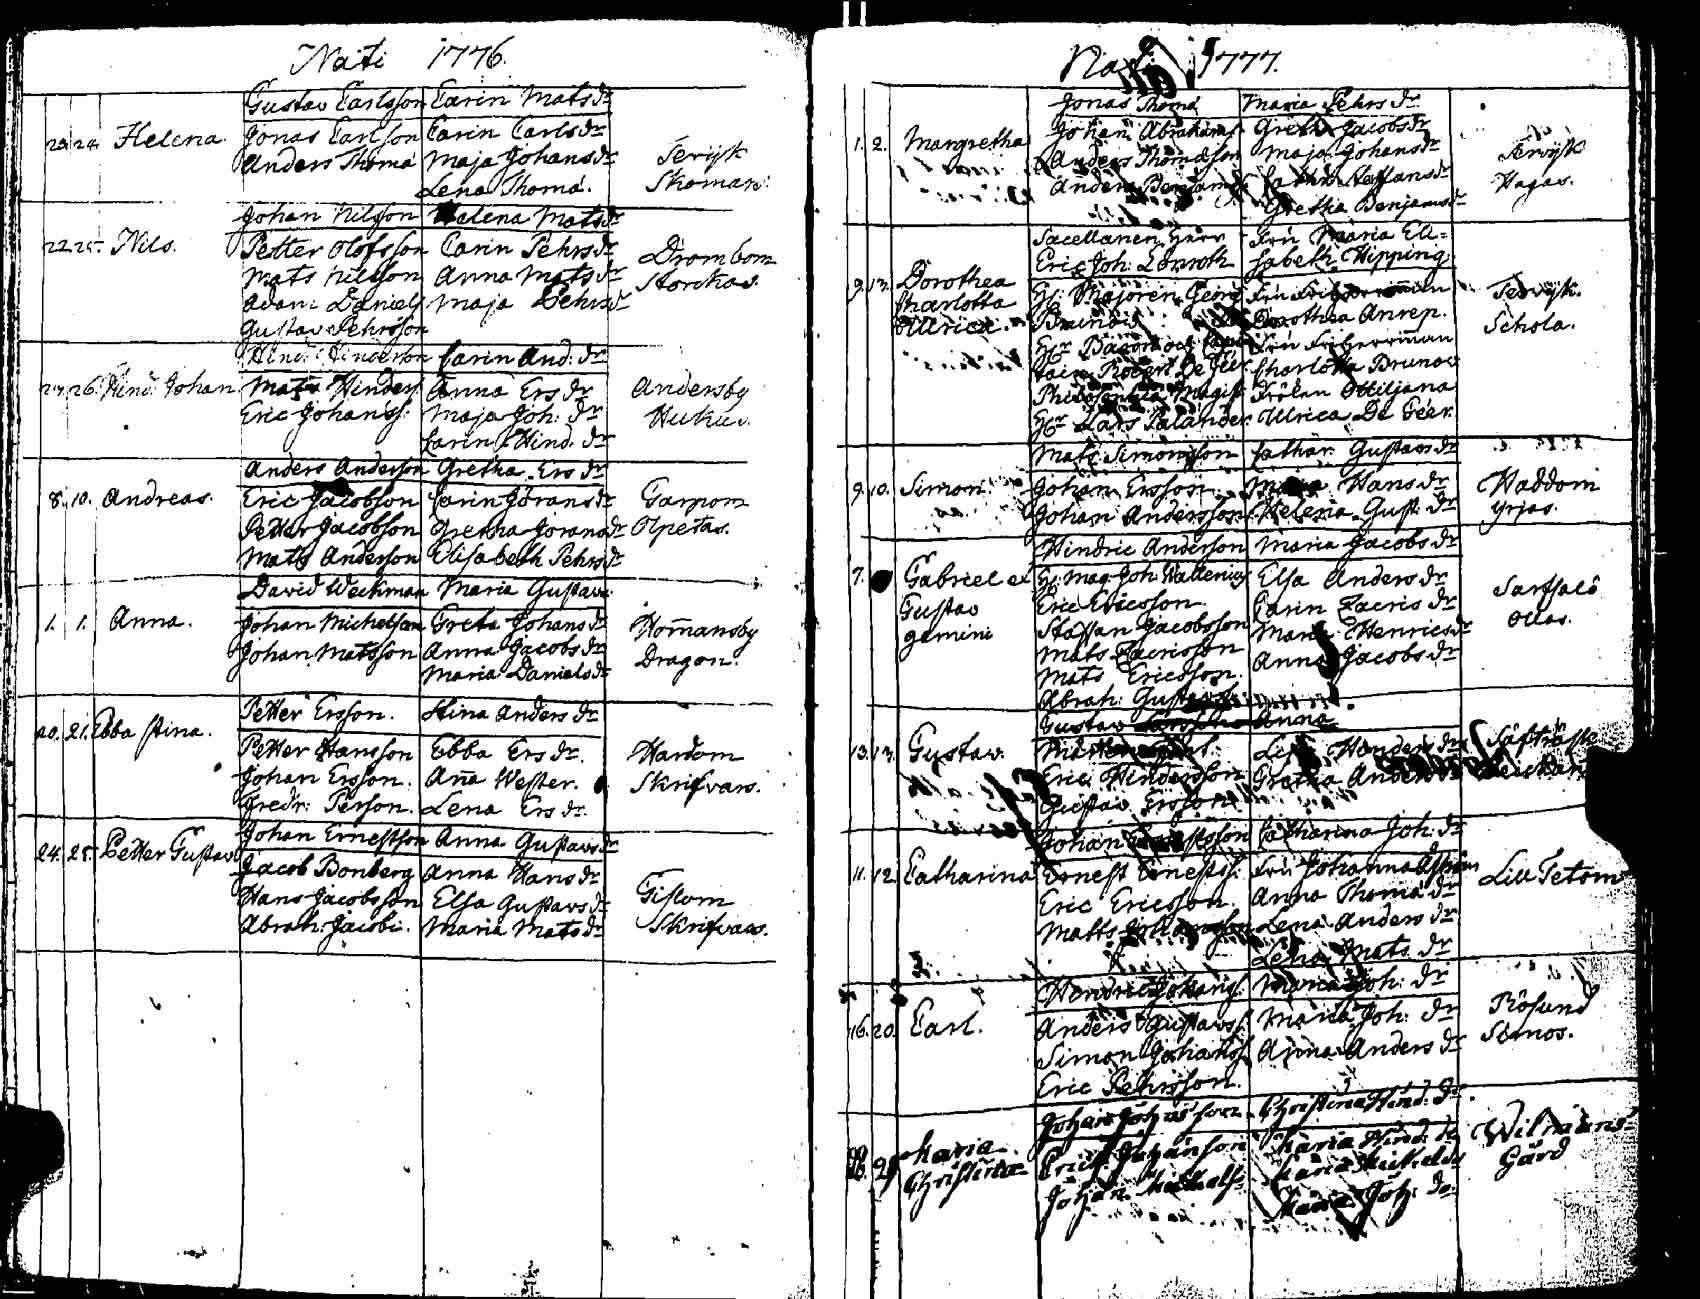 Nati 1776.
Gustav Carlsson Carin Mats dr
23. 24. Helena. Jonas Carlsson Carin Carls dr
Anders Thoma Maja Johans dr Tervijk
Lena Thoma. Skomars.
Johan Nilsson Helena Mats dr
22. 25. Nils. Petter Olofsson Carin Pehrs dr Drombom
Mats Nilsson Anna Mats dr Storckas.
Adam Daniels Maja Pehrs dr
Gustav Pehrsson
Hind. Hinderson Carin And. dr
26. Hind. Johan Mats Hinders Anna Ers dr Andersby
Eric Johanss. Maja Joh. dr
Carin Hind. dr
Anders Anderson Gretha Ers dr
8. 10. Andreas. Eric Jacobsson Carin Görans dr Garpom
Petter Jacobson Gretha Jorans dr Olpetas.
Mats Anderson Elisabeth Pehrs dr
David Weckman Maria Gustavs
1. 1. Anna. Johan Michelson Greta Johans dr Hommansby
Johan Matsson Anna Jacobs dr Dragon.
Maria Daniels dr
Petter Ersson. Stina Anders dr
20. 21. Ebba Stina. Petter Hansson Ebba Ers dr. Hardom
Johan Ersson. Anna Wester. Skrifvars.
Fredr. Person. Lena Ers dr
Johan Ernestson Anna Gustavs dr
24. 25. Petter Gustav Jacob Bonberg Anna Hans dr
Hans Jacobsson Elsa Gustavs dr Gislom
Abrah. Jacobi. Maria Mats dr Skrifvars.
Nati 1777.
Jonas Thoma Maria Pehrs dr
1. 2. Margretha Johan Abrahams Greta Jacobs dr Tervijk
Anders Thomasson Maja Johans dr Hagas.
Anders Benjam. Cathr. Staffans dr
Gretha Benjams dr
Sacellanen Herr Fru Maria Eli-
Eric Joh. Lönroth sabeth Hipping
9. 13. Dorothea Hr Majoren Georg Fru Friherrinnan Tervijk.
Charlotta Brunow Dorothea Anrep. Schola.
Ullrica. Hr Baron och Fru Friherrinnan
Robert De Geer Charlotta Brunow
Philosophia Magist. Frölen Ottiliana
Hr Lars Palander Ullrica De Geer.
Mats Simonsson Cathar. Gustavs dr
9. 10. Simon. Johan Ersson. Maria Hans dr Haddom
Johan Andersson. Helena Gust. dr Yrjas.
Hindric Anderson Maria Jacobs dr
7. Gabriel et Hr Mag. Joh. Wallenius Elsa Anders dr Sarfsalö
Gustav Eric Ericsson. Carin Zacris dr Ollas.
gemini Staffan Jacobsson Maria Henrics dr
Mats Zacrisson Anna Jacobs dr
Mats Ericsson
Abrah. Gustavs
Gustav Anna
13. 13. Gustav. Hinders dr Säfträsk
Eric Hindersson Gretha Anders dr
Gustav Ersson
Johan Catharina Joh. dr
11. 12. Catharina Ernest Ernests. Fru Johanna Lill Tetom
Eric Ericsson. Anna Thoma dr
Matts Johansson Lena Anders dr
Lena Mats dr
Hendric Johans. Maria Joh. dr
16. 20. Carl. Anders Gustavss. Maria Joh. dr Rösund
Simon Johanss. Anna Anders dr Simos.
Eric Pehrsson.
Johan Johansson Christina Hind. dr
28. 29 Maria Erich Johanson Maria Hind. dr
Christina Johan Mickelss. Maria Mickels dr Gård
Maria Joh. dr